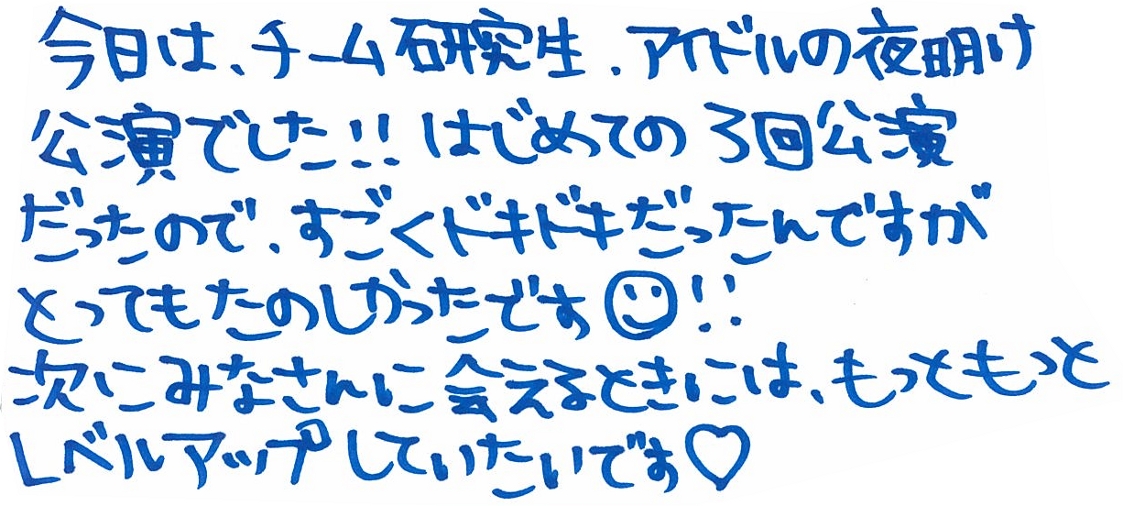 今日は、チーム研究生、アイドルの夜明け
公演でした!! はじめての3回公演
だったので、すごくドキドキだったんですが
とってもたのしかったです☺!!
次にみなさんに会えるときには、もっともっと
レベルアップしていたいです♡